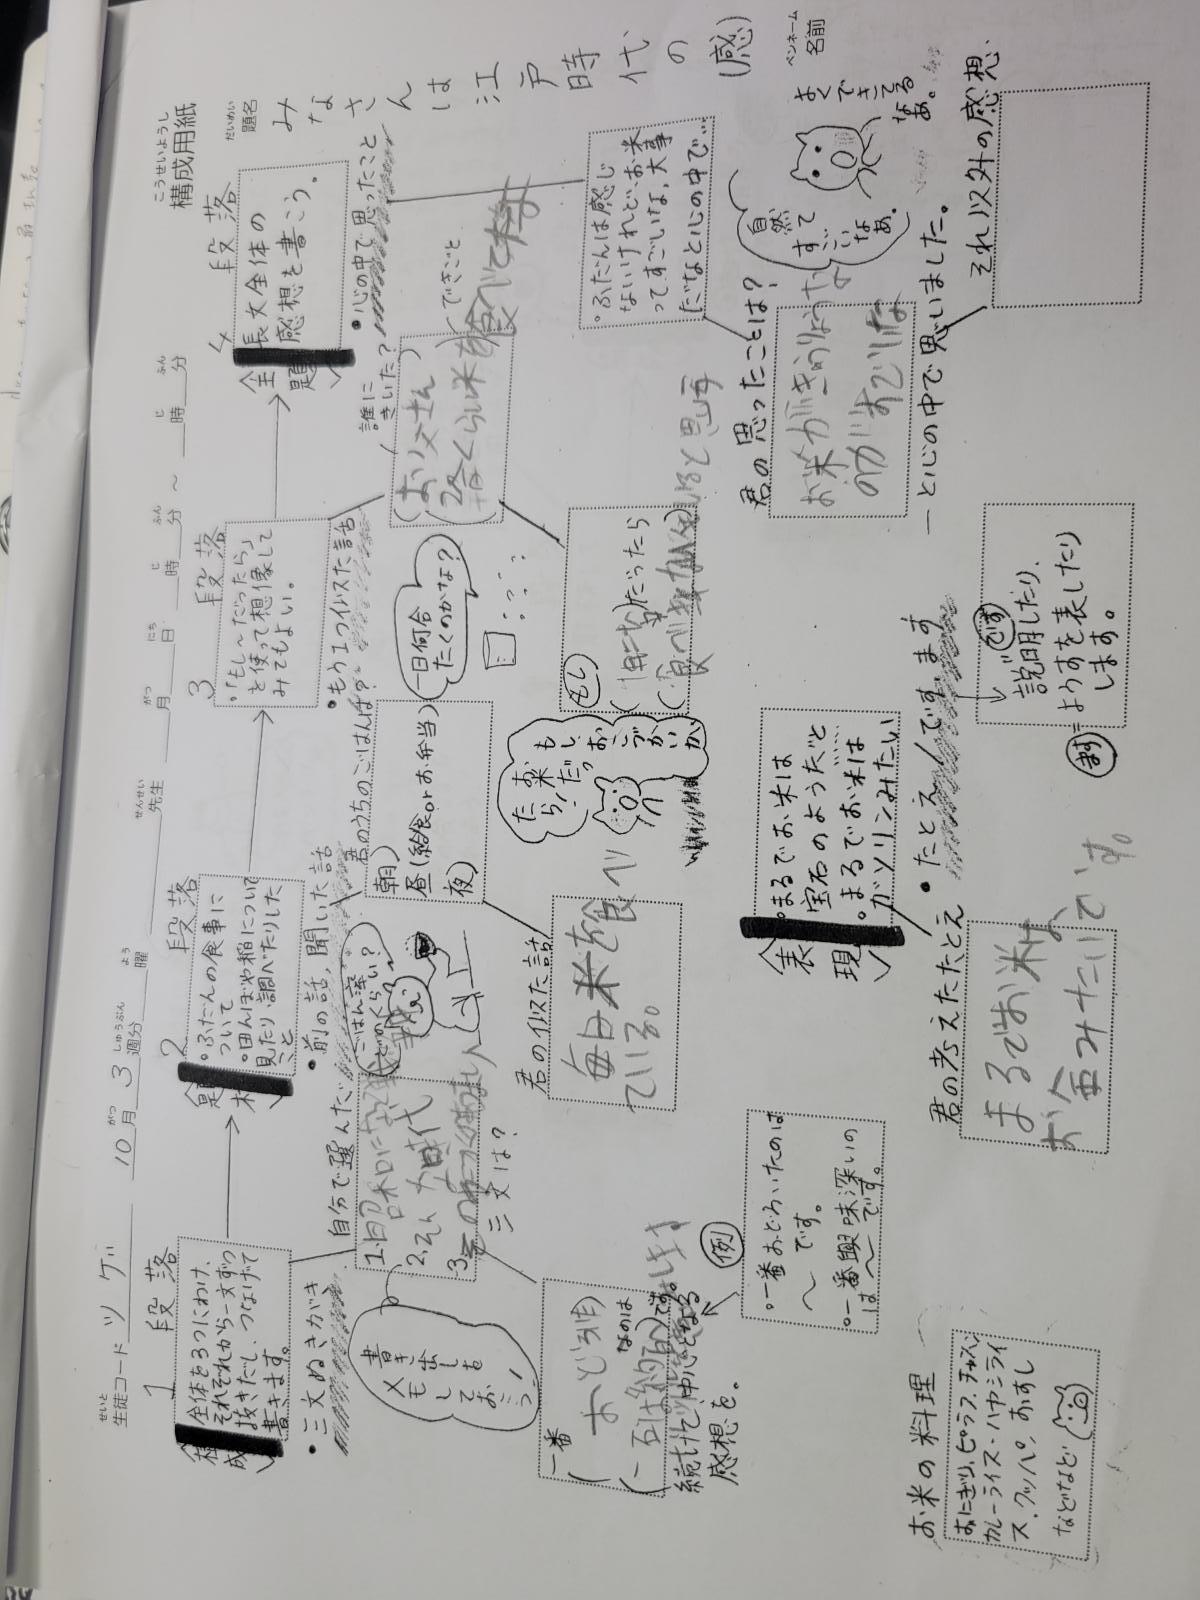 構成用紙
こうせいようし
題名
だいめい
みなさんは江戸時代の(感)
ペンネーム
名前
生徒コード ツゲ
せいと
10月3週分 曜 先生 月 日 時 分 ~ 時 分
がつ しゅうぶん よう せんせい がつ にち じ ふん じ ふん
1段落
全体を3つにわけ、
それぞれから一文ずつ
抜きだし、つなげて
書きます。
・三文ぬきがき
書き出しもメモしておこう!
自分で選んだ
三文は?
1.昭和になって
2.
3.
一番
(おどろいた)
なのは
です。
続けて、中心となる
感想を。
例
・一番おどろいたのは
~です。
・一番興味深いの
は~です。
お米の料理
おにぎり、ピラフ、チャーハン
カレーライス・ハヤシライ
ス・クッパ、おすし
などなど
2段落
題材
・ふだんの食事に
ついて
・田んぼや稲について
見たり、調べたりした
こと
・前の話、聞いた話
ごはん派?
君のうちのごはんは?
朝)
昼(給食orお弁当)
夜)
一日何合
たくのかな?
君の似た話
毎日米を食べ
ている。
3段落
・「もし~だったら」
と使って想像して
みてもよい。
・もう1つ似た話
誰に
きいた?
できごと
(お父さん)
もし
だったら
もし、おこづかいが
お米だったら!
表現
・まるでお米は
宝石のようだと
・まるでお米は
ガソリンみたい
・たとえ/です、ます
君の考えたたとえ
まるでお米は、
お金みたいです。
です
説明したり、
ます=ようすを表したり
します。
4段落
全題
長文全体の
感想を書こう。
・心の中で思ったこと
・ふだんは感じ
ないけれど、お米
ってすごいな、大事
だなと心の中で…
君の思ったことは?
自然
すて
ごい
なぁ。
よくできてるなぁ。
―と心の中で思いました。
それ以外の感想。